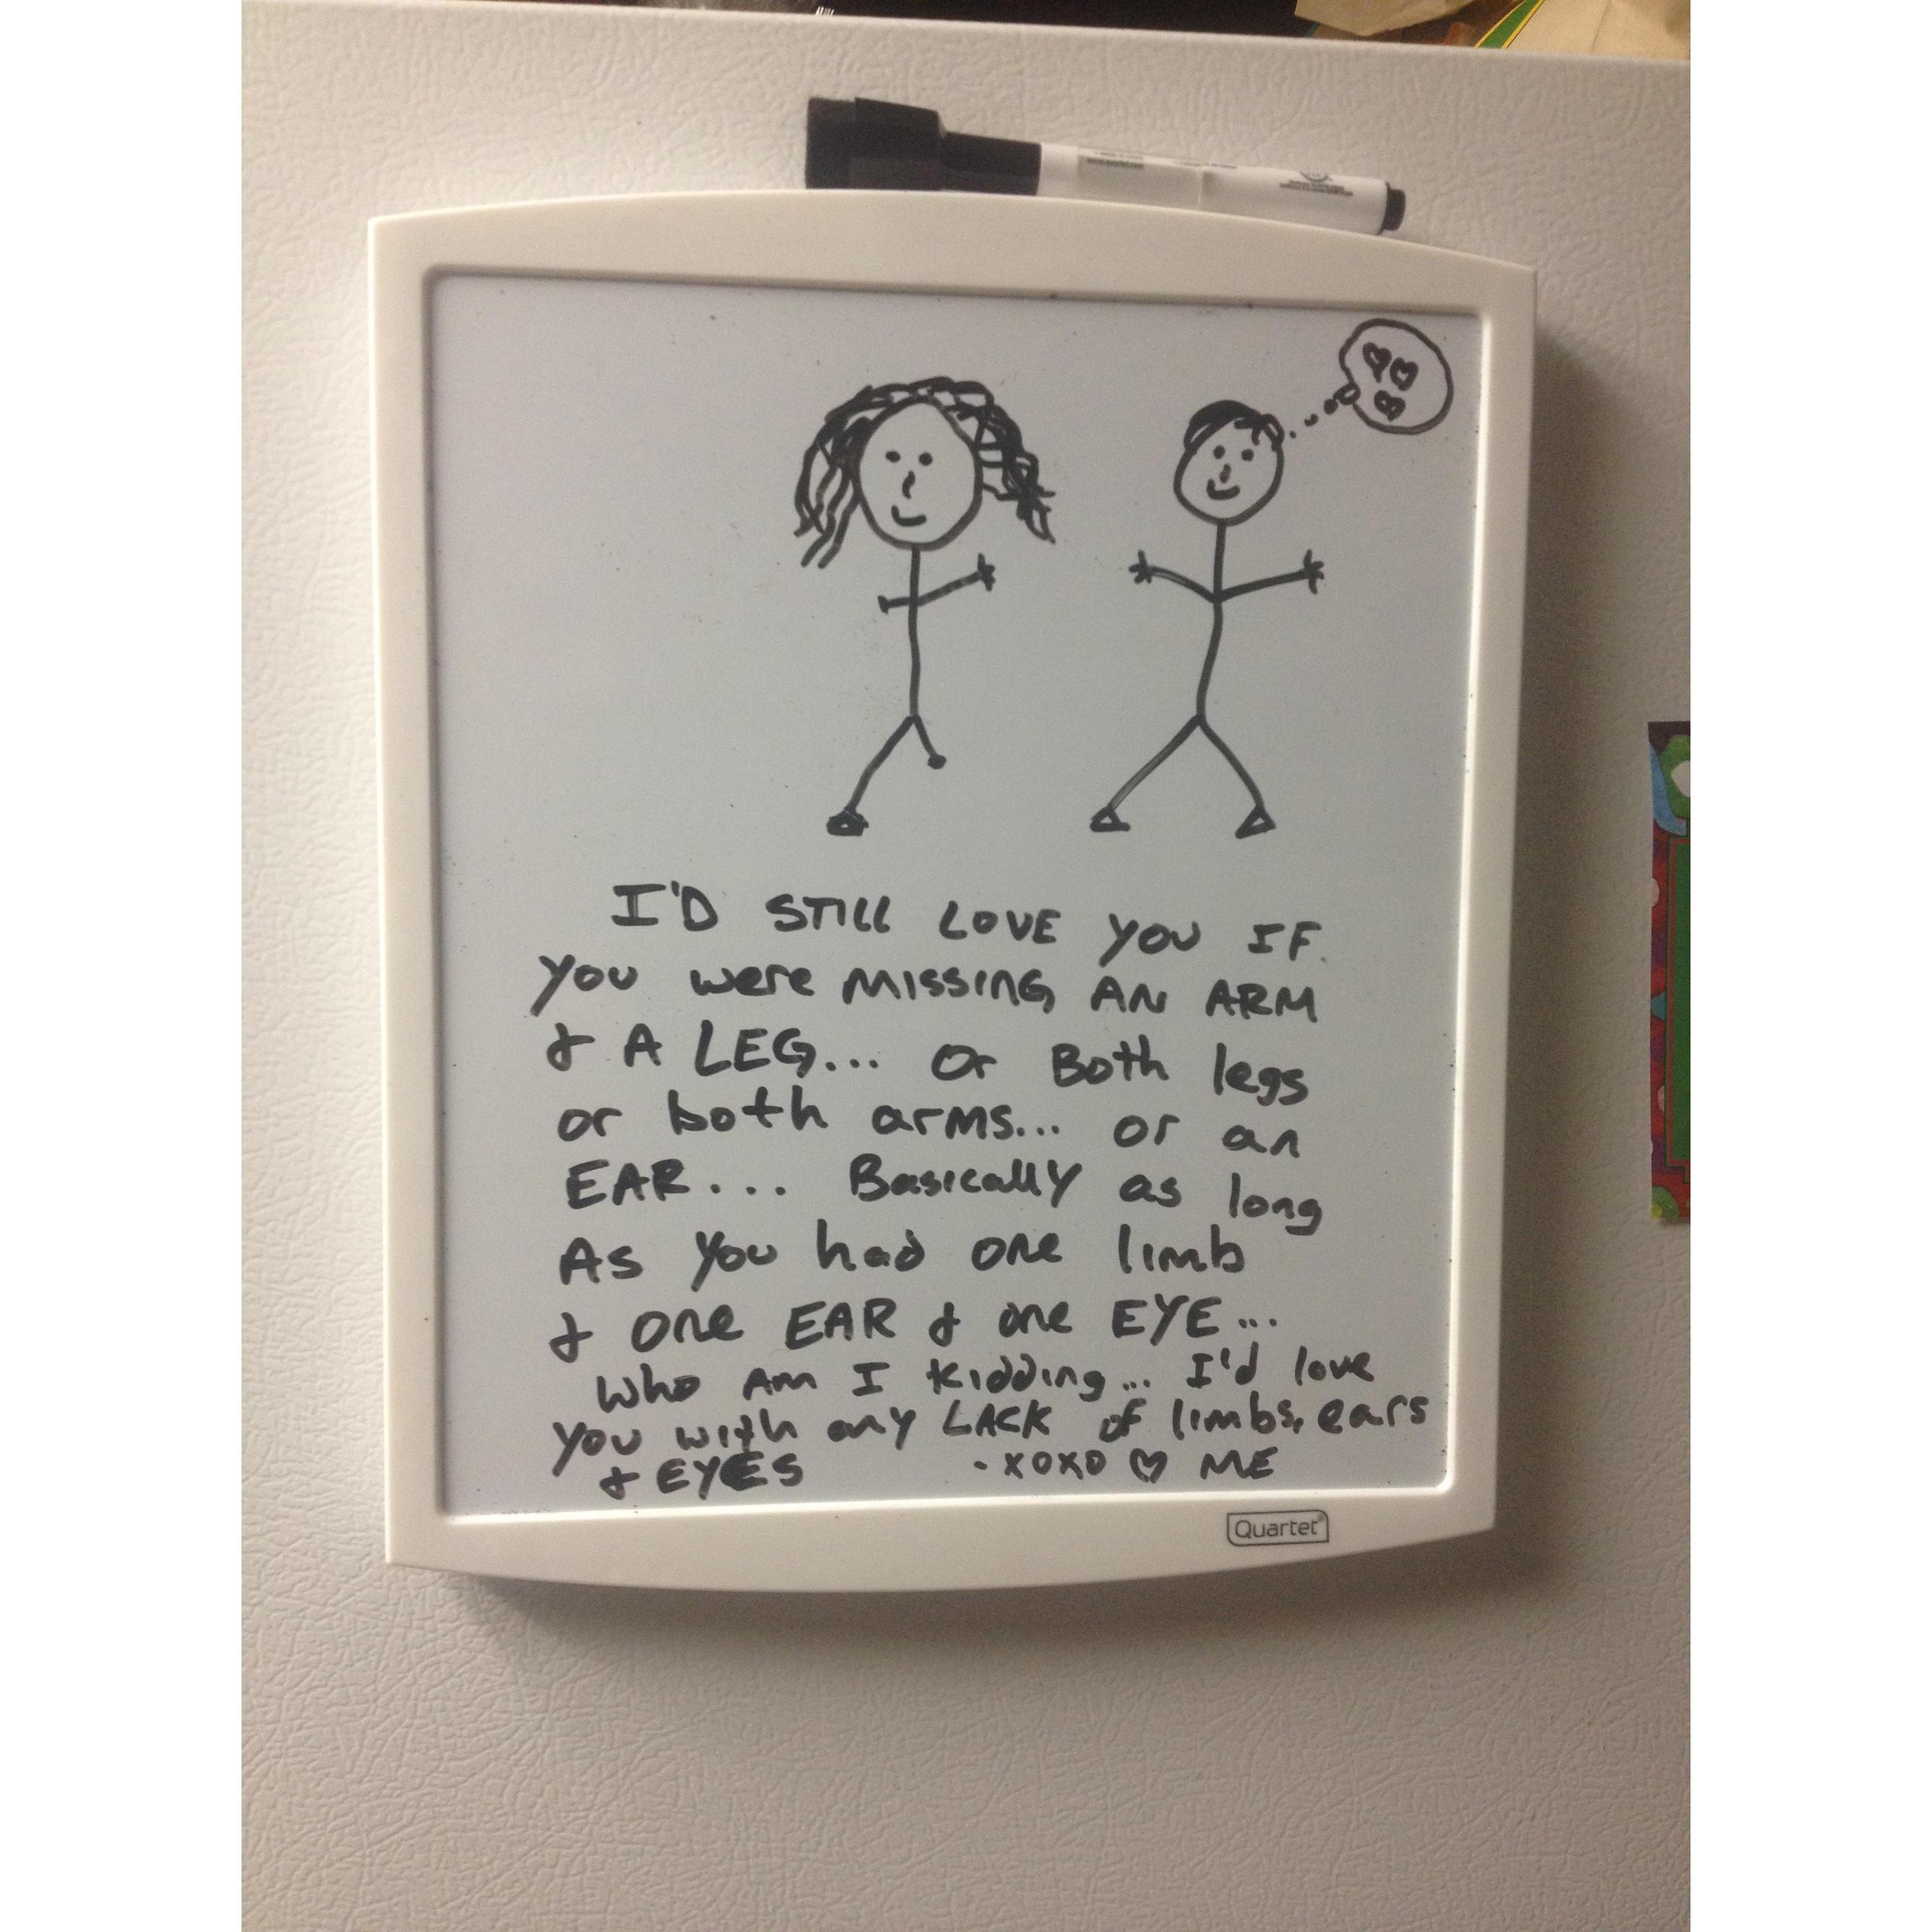 I'D STILL LOVE YOU IF
You were MISSING AN ARM
& A LEG... Or Both legs
or both arms... or an
EAR... Basically as long
As you had one limb
& one EAR & one EYE...
Who Am I kidding... I'd love
you with any LACK of limbs, ears
& EYES -XOXO ♡ ME
Quartet®